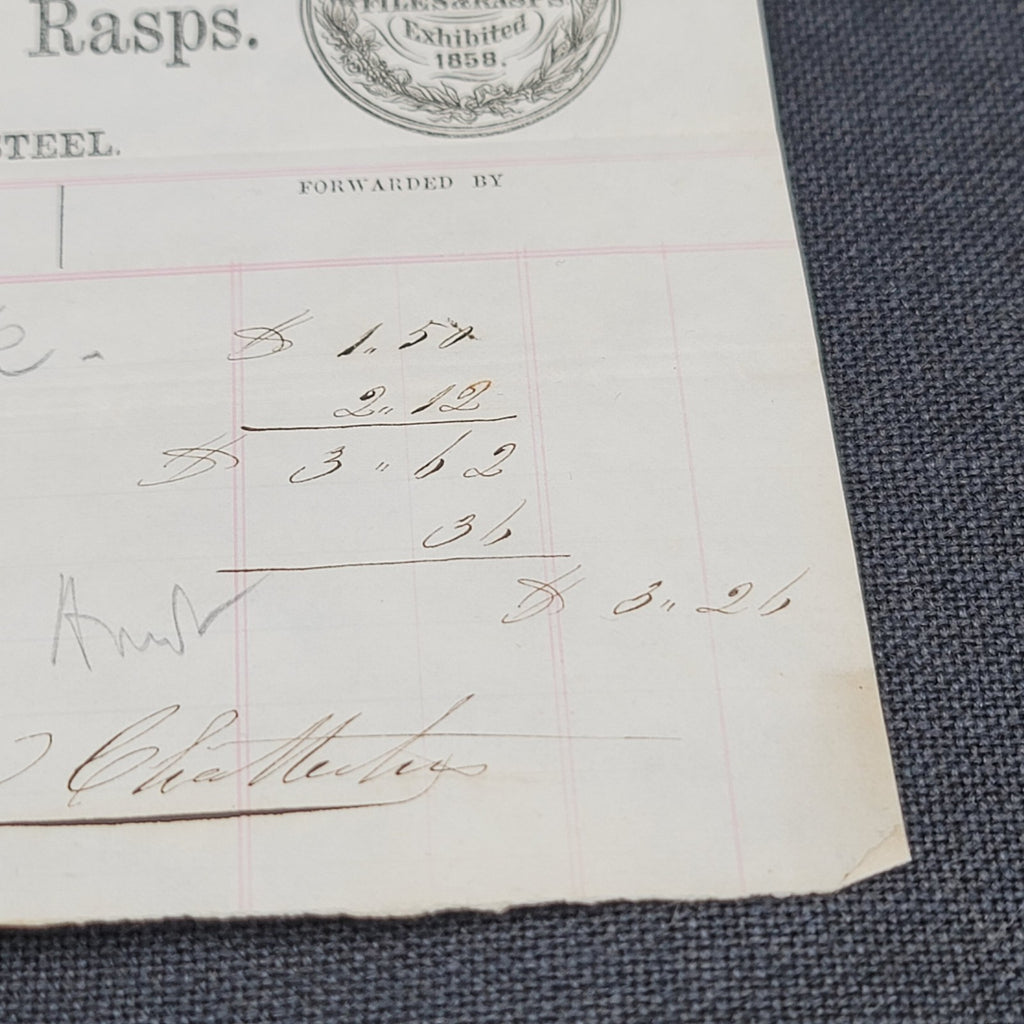 Rasps.
FILES & RASPS
Exhibited
1858.
STEEL.
FORWARDED BY
$ 1.50
2.12
$ 3.62
36
$ 3.26